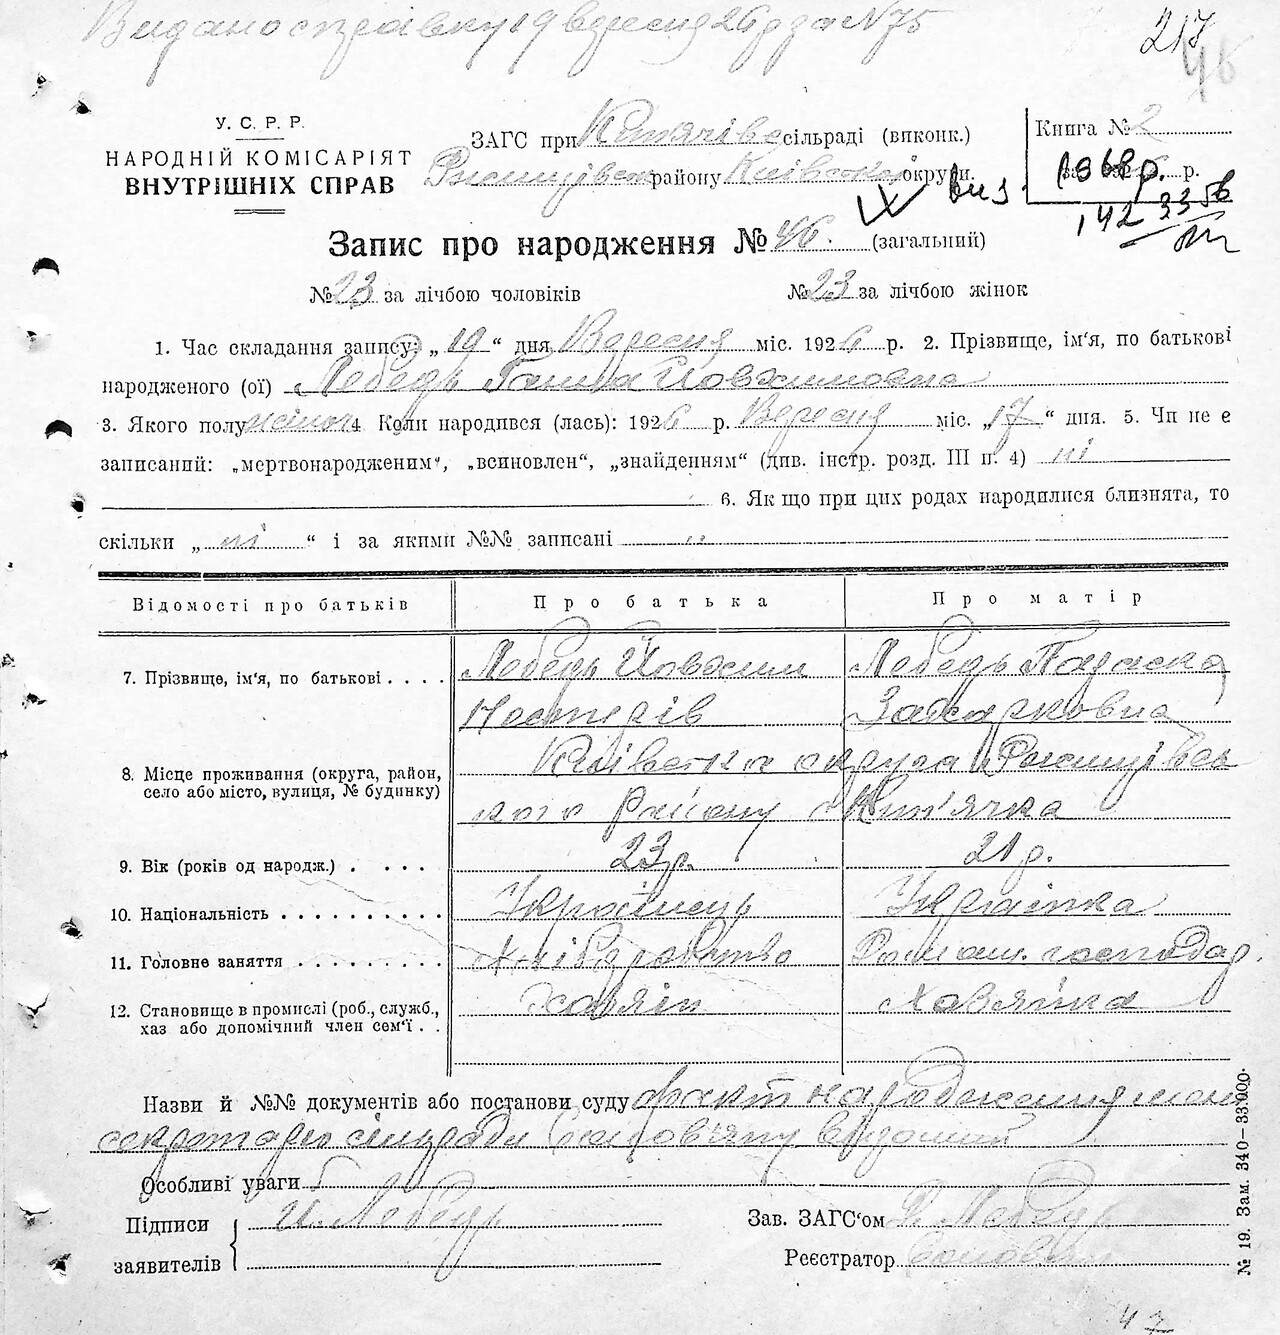 Видано справку 19 вересня 26 р за №75
217
46
У. С. Р. Р.
НАРОДНІЙ КОМІСАРІЯТ
ВНУТРІШНІХ СПРАВ
ЗАГС при сільраді (виконк.)
району Київської округи.
Книга № 2
1968 р. р.
142 33 56
Запис про народження № 46. (загальний)
№ 23 за лічбою чоловіків № 23 за лічбою жінок
1. Час складання запису: „ 19 “ дня Вересня міс. 1926 р. 2. Прізвище, ім'я, по батькові
народженого (ої) Лебедь Ганна Йовхимовна
3. Якого полу жіноч 4 Коли народився (лась): 1926 р. Вересня міс. „17“ дня. 5. Чи не є
записаний: „мертвонародженим“, „всиновлен“, „знайденням“ (див. інстр. розд. III п. 4) ні
6. Як що при цих родах народилися близнята, то
скільки „ ні “ і за якими №№ записані "
Відомості про батьків Про батька Про матір
7. Прізвище, ім'я, по батькові . . . . Лебедь Йовхим Лебедь Параска
Нестерів Захарковна
8. Місце проживання (округа, район, село або місто, вулиця, № будинку) Київська округа Ржищівсь
кого Району
9. Вік (років од народж.) . . . . 23 р. 21 р.
10. Національність . . . . . . . . . . Українець Українка
11. Головне заняття . . . . . . . . . Хліборобство Домаш. господар.
12. Становище в промислі (роб., служб., Хазяїн Хазяйка
хаз або допомічний член сем'ї . .
Назви й №№ документів або постанови суду факт народження
секретарю сільради
Особливі уваги
Підписи И. Лебедь Зав. ЗАГС'ом Лебедь
заявителів Реєстратор
№ 19. Зам. 340—33000.
47